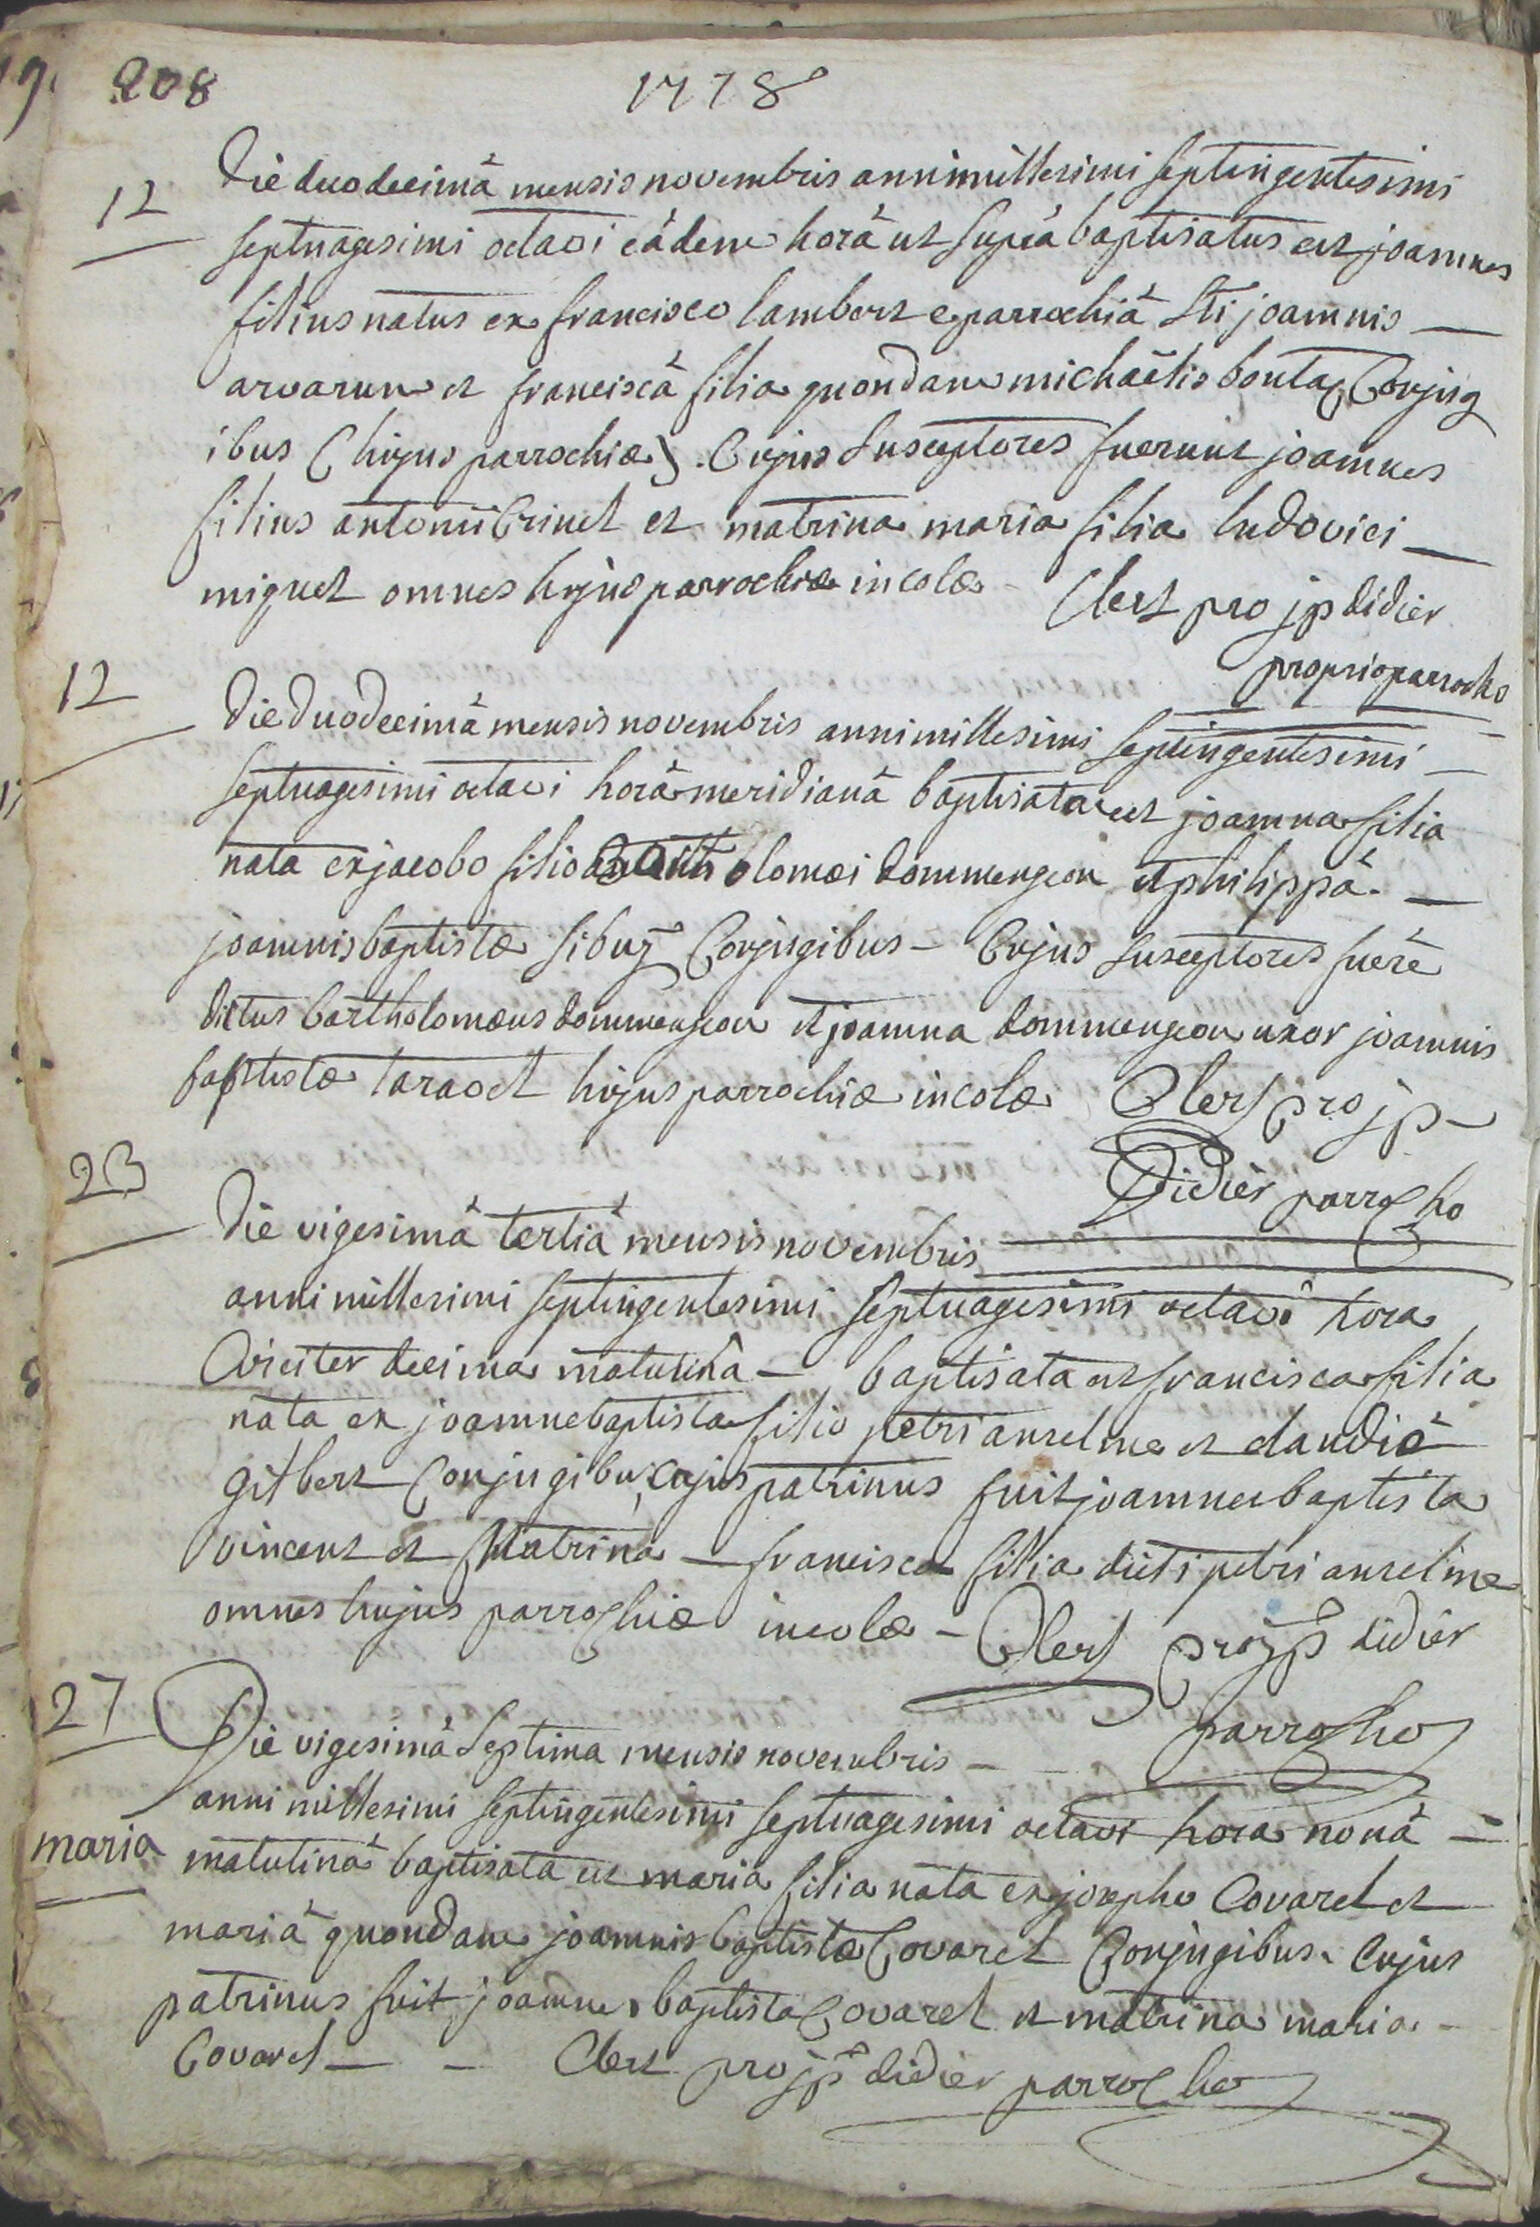 208
1778
12
Die duodecimâ mensis novembris anni millesimi septingentesimi
septuagesimi octavi eâdem horâ ut suprâ baptisatus est joannes
filius natus ex francisco lambert e parrochiâ Sti joannis —
arvarum et franciscâ filia quondam michaëlis bontaz Conjug
ibus (hujus parrochiæ). Cujus susceptores fuerunt joannes
filius antonii Crinel et matrina maria filia ludovici —
miguet omnes hujus parrochiæ incolæ Clert pro jp didier
proprio parrocho
12
Die Duodecimâ mensis novembris anni millesimi septingentesimi —
septuagesimi octavi horâ meridianâ baptisata est joanna filia
nata ex jacobo filio olomæi dommengeon et philippâ —
joannis baptistæ sibuz Conjugibus — Cujus susceptores fuêre
dictus bartholomæus dommengeon et joanna dommengeon uxor joannis
baptistæ taravel hujus parrochiæ incolæ Clert pro jp —
Didier parrocho
23
Die vigesimâ tertiâ mensis novembris
anni millesimi septingentesimi septuagesimi octavi hora
Circiter decima matutinâ — baptisata est francisca filia
nata ex joanne baptista filio petri anselme et claudiâ
gilbert Conjugibus, cujus patrinus fuit joannes baptista
vincent et Matrina — francisca filia dicti petri anselme
omnes hujus parrochiæ incolæ — Clert pro jp didier
parrocho
27
Die vigesimâ septima mensis novembris —
anni millesimi septingentesimi septuagesimi octavi hora nonâ —
maria
matutinâ baptisata est maria filia nata ex josepho Covarel et
mariâ quondam joannis baptistæ Covarel Conjugibus. Cujus
patrinus fuit joannes baptista Covarel et matrina maria —
Covarel — — Clert pro jp didier parrocho